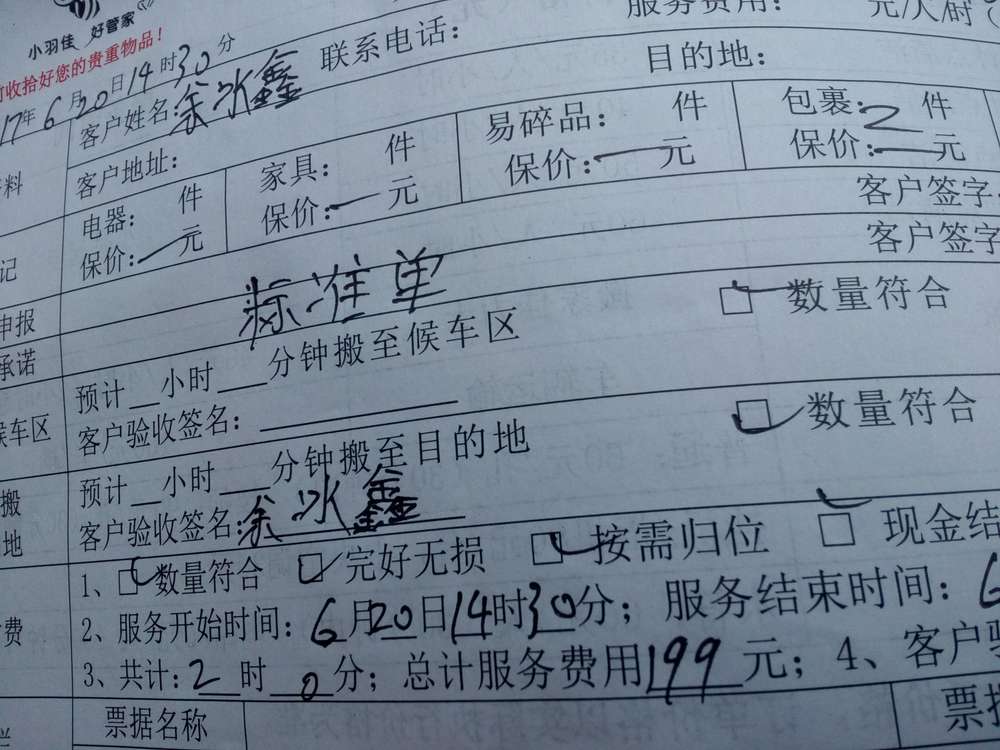 小羽佳 好管家
收拾好您的贵重物品！
服务费用： 元/人/时（
17年6月20日14时30分
客户姓名：余冰鑫 联系电话：
客户地址： 目的地：
电器： 件 家具： 件 易碎品： 件 包裹：2件
保价：一元 保价：一元 保价：一元 保价：一元
客户签字：
客户签字
标准单
申报
承诺
预计__小时___分钟搬至候车区 □数量符合
候车区 客户验收签名：
预计__小时___分钟搬至目的地 □数量符合
搬
地 客户验收签名：余冰鑫
1、□数量符合 □完好无损 □按需归位 □现金结
费 2、服务开始时间：6月20日14时30分；服务结束时间：6
3、共计：2时0分；总计服务费用199元；4、客户验
票据名称 票据